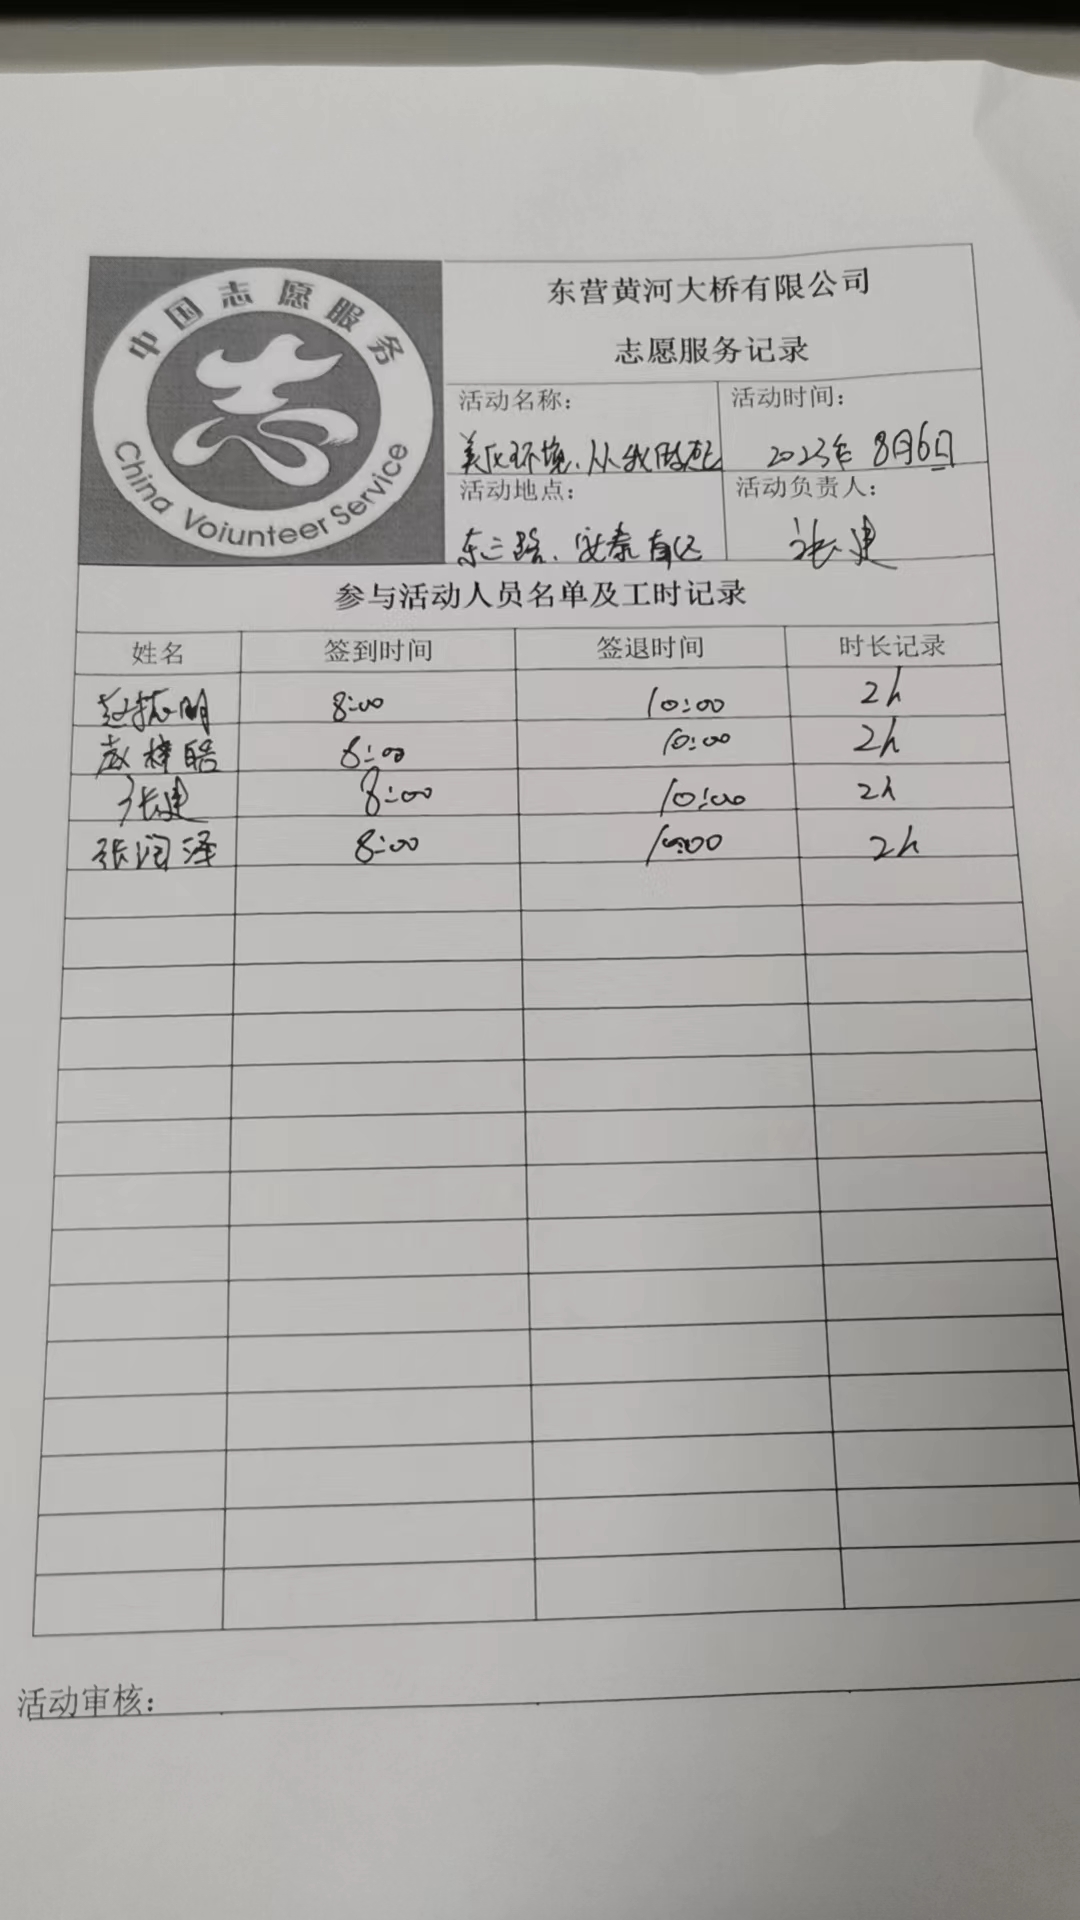 中国志愿服务
志
China Voiunteer Service
东营黄河大桥有限公司
志愿服务记录
活动名称：
活动时间：
美化环境、从我做起
2023年 8月6日
活动地点：
活动负责人：
东三路、安泰南区
张建
参与活动人员名单及工时记录
姓名 签到时间 签退时间 时长记录
赵志明 8:00 10:00 2h
赵梓皓 8:00 10:00 2h
张建 8:00 10:00 2h
张润泽 8:00 10:00 2h
活动审核：